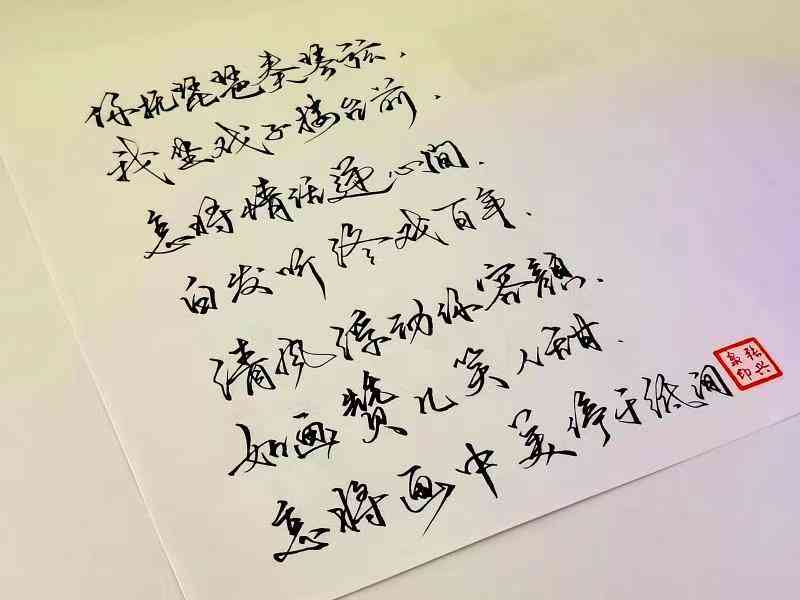 你抚琵琶奏琴弦.
我坐戏子楼台前.
怎将情话递心间.
白发听终戏百年.
清风浮动你容颜.
如画赞几笑人甜.
怎将画中美停于纸间
张兴泉印